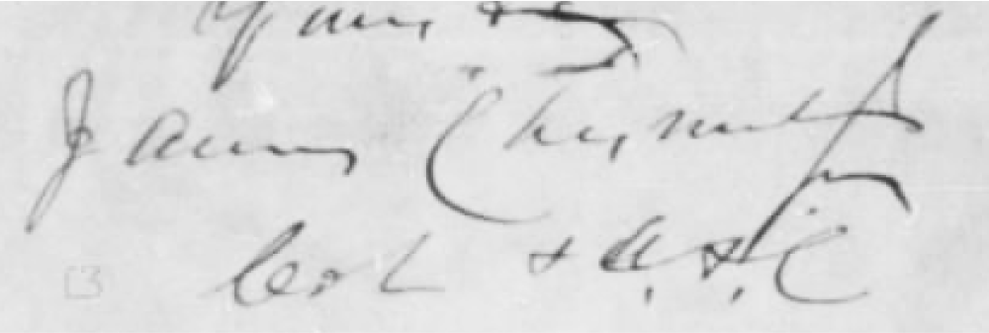 Yours &c
James Chesnut Jr
Col & A.D.C